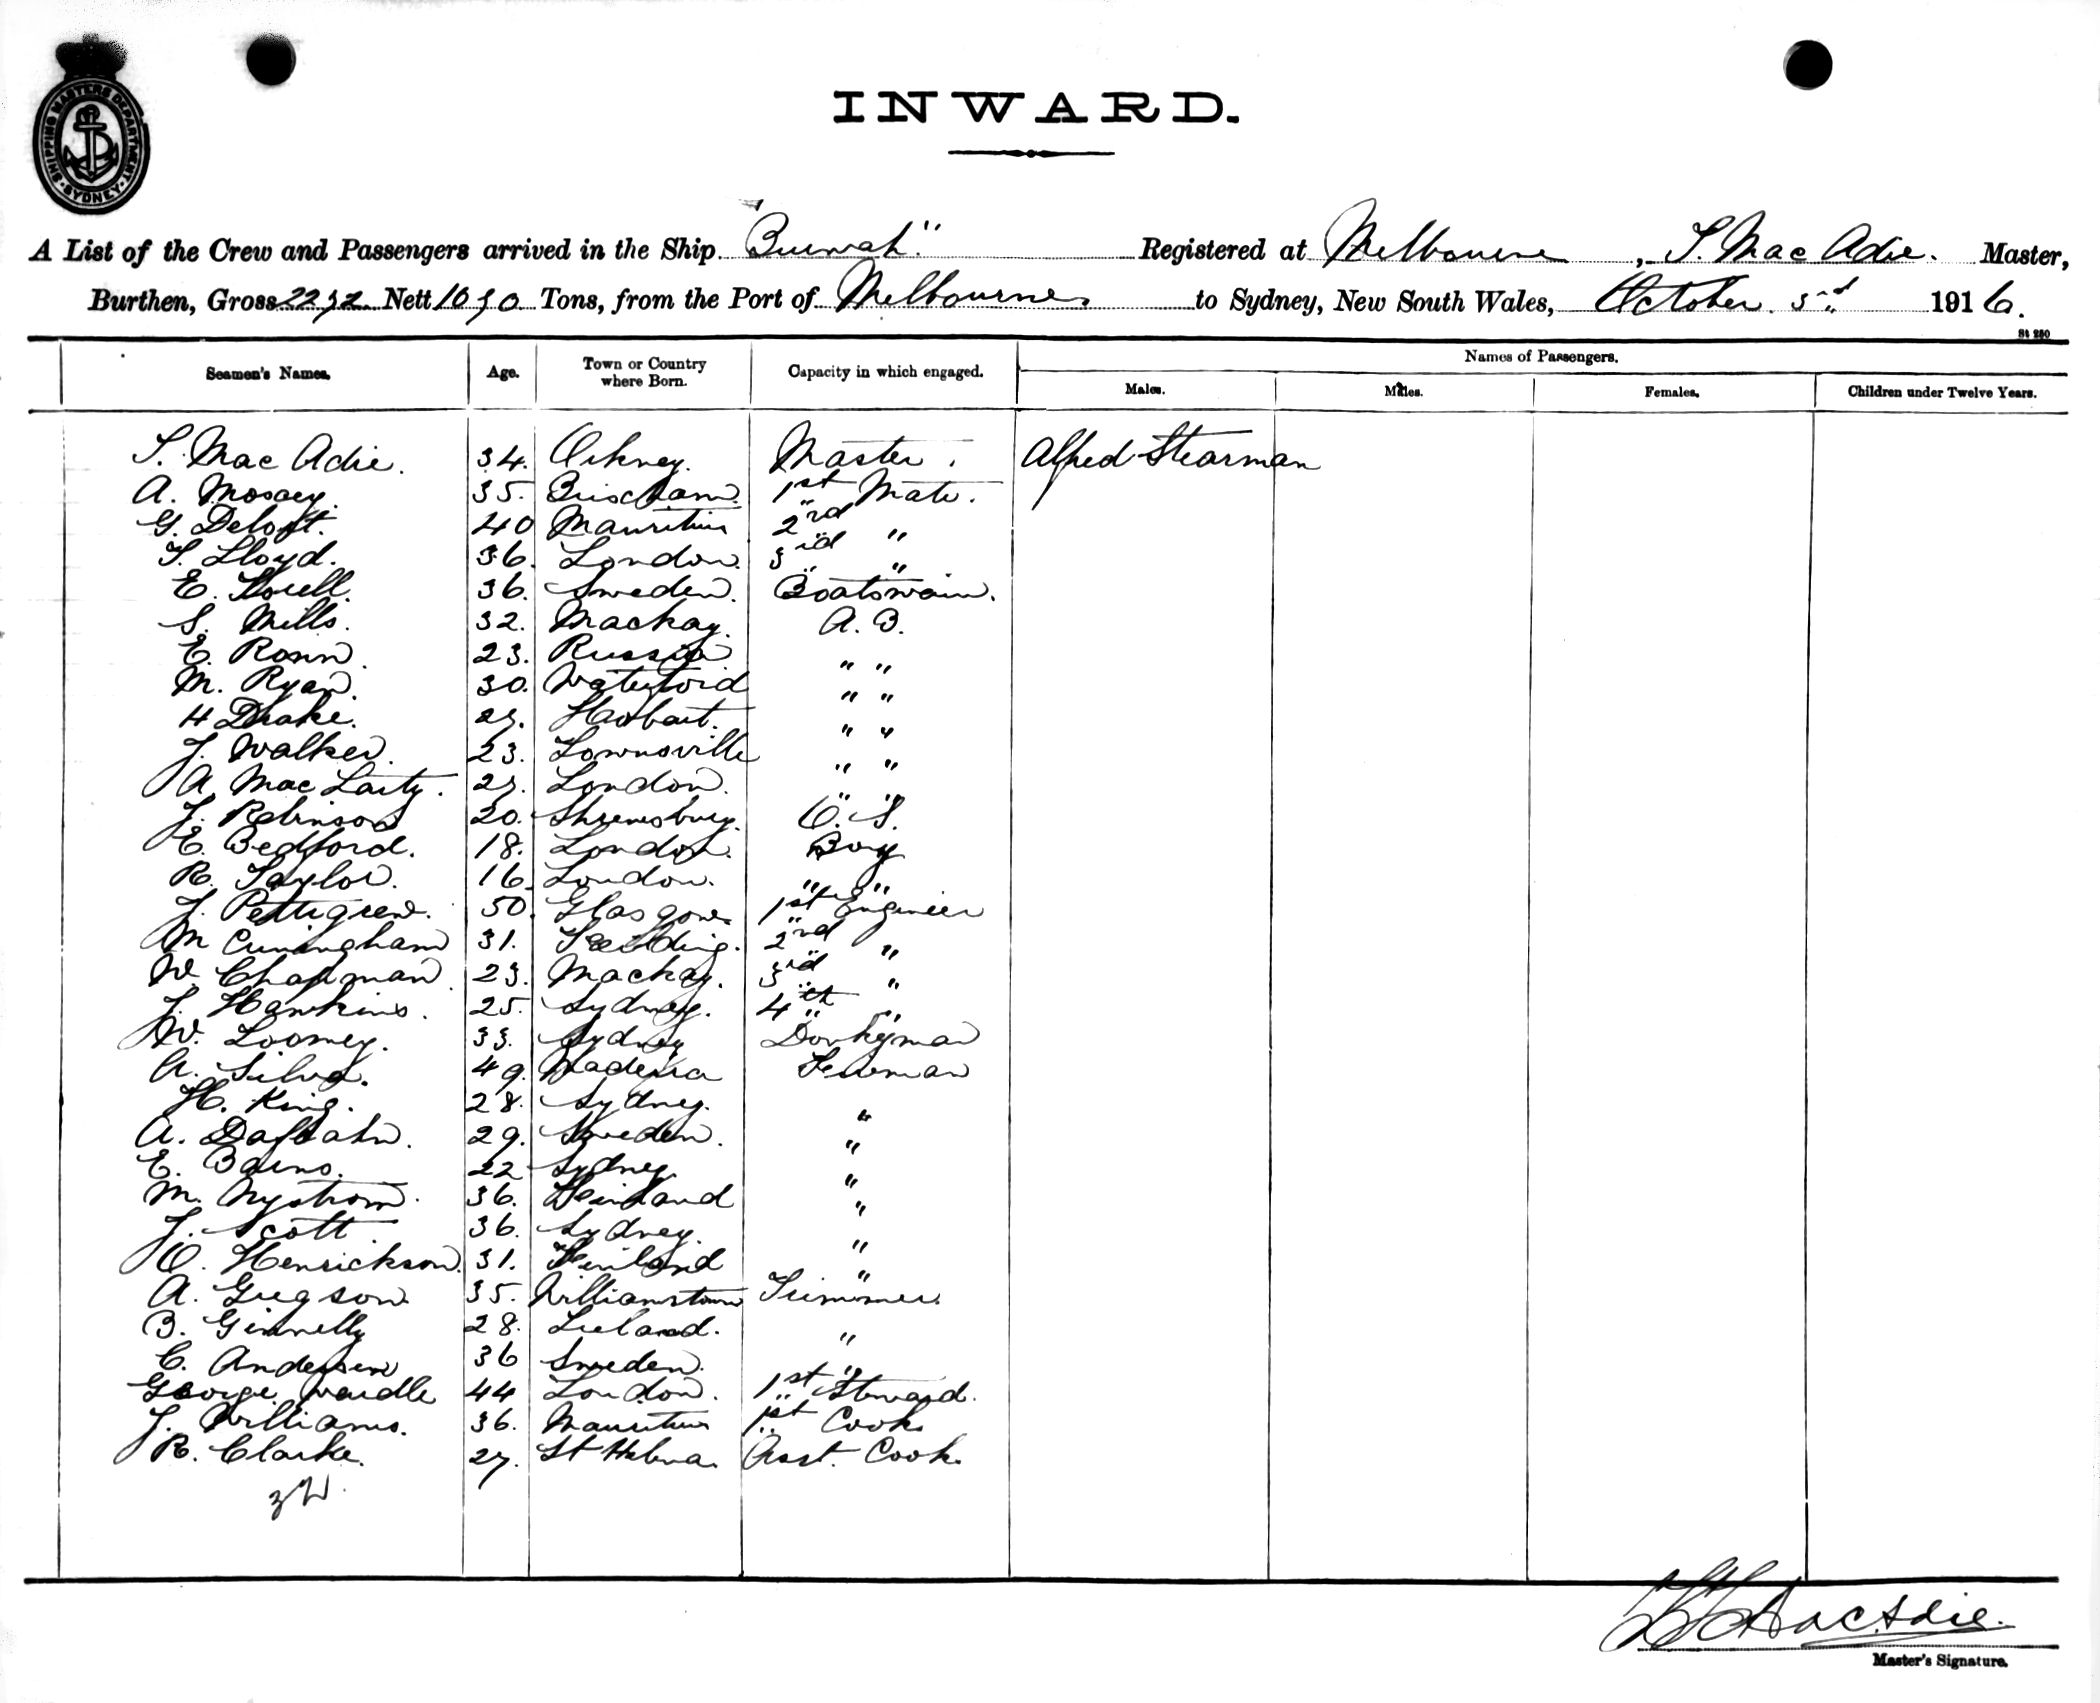 SHIPPING MASTERS DEPARTMENT SYDNEY
INWARD.
A List of the Crew and Passengers arrived in the Ship "Burwah" Registered at Melbourne, S. Mac Adie. Master,
Burthen, Gross Nett Tons, from the Port of Melbourne to Sydney, New South Wales, October 3rd 1916.
St 250
Seamen's Names. Age. Town or Country where Born. Capacity in which engaged. Names of Passengers.
Males. Males. Females. Children under Twelve Years.
S. Mac Adie. 34. Orkney. Master. Alfred Stearman
A. 35. Brixham. 1st Mate.
G. 40 Mauritius 2nd "
S. Lloyd. 36. London. 3rd "
E. 36. Sweden. Boatswain.
S. Mills. 32. Mackay. A.B.
E. Rosin. 23. Russia " "
M. Ryan. 30. Waterford " "
H Drake. 27. Hobart. " "
J. Walker. 23. Townsville " "
A. Mac Larty. 27. London. " "
J. Robinson 20. Shrewsbury. O.S.
E. Bedford. 18. London. Boy
R. Taylor. 16. London. " "
J. Pettigrew. 50. Glasgow. 1st Engineer
M Cuningham 31. 2nd "
W. Chapman. 23. Mackay. 3rd "
J. Hawkins. 25. Sydney. 4th "
W. Loomey. 33. Sydney Donkeyman
A. Silva. 49. Madeira Fireman
H. King. 28. Sydney. "
A. 29. Sweden. "
E. 22 Sydney. "
M. Nystrom. 36. Finland "
J. Scott 36. Sydney. "
O. Henrickson. 31. Finland "
A. Gregson. 35. Williamstown Trimmer.
B. Ginnelly 28. Ireland. "
C. Andersen 36 Sweden. "
George Wardle 44 London. 1st Steward.
J. Williams. 36. Mauritius 1st Cook.
R. Clarke. 27. St Helena. Asst. Cook.
MacAdie.
Master's Signature.